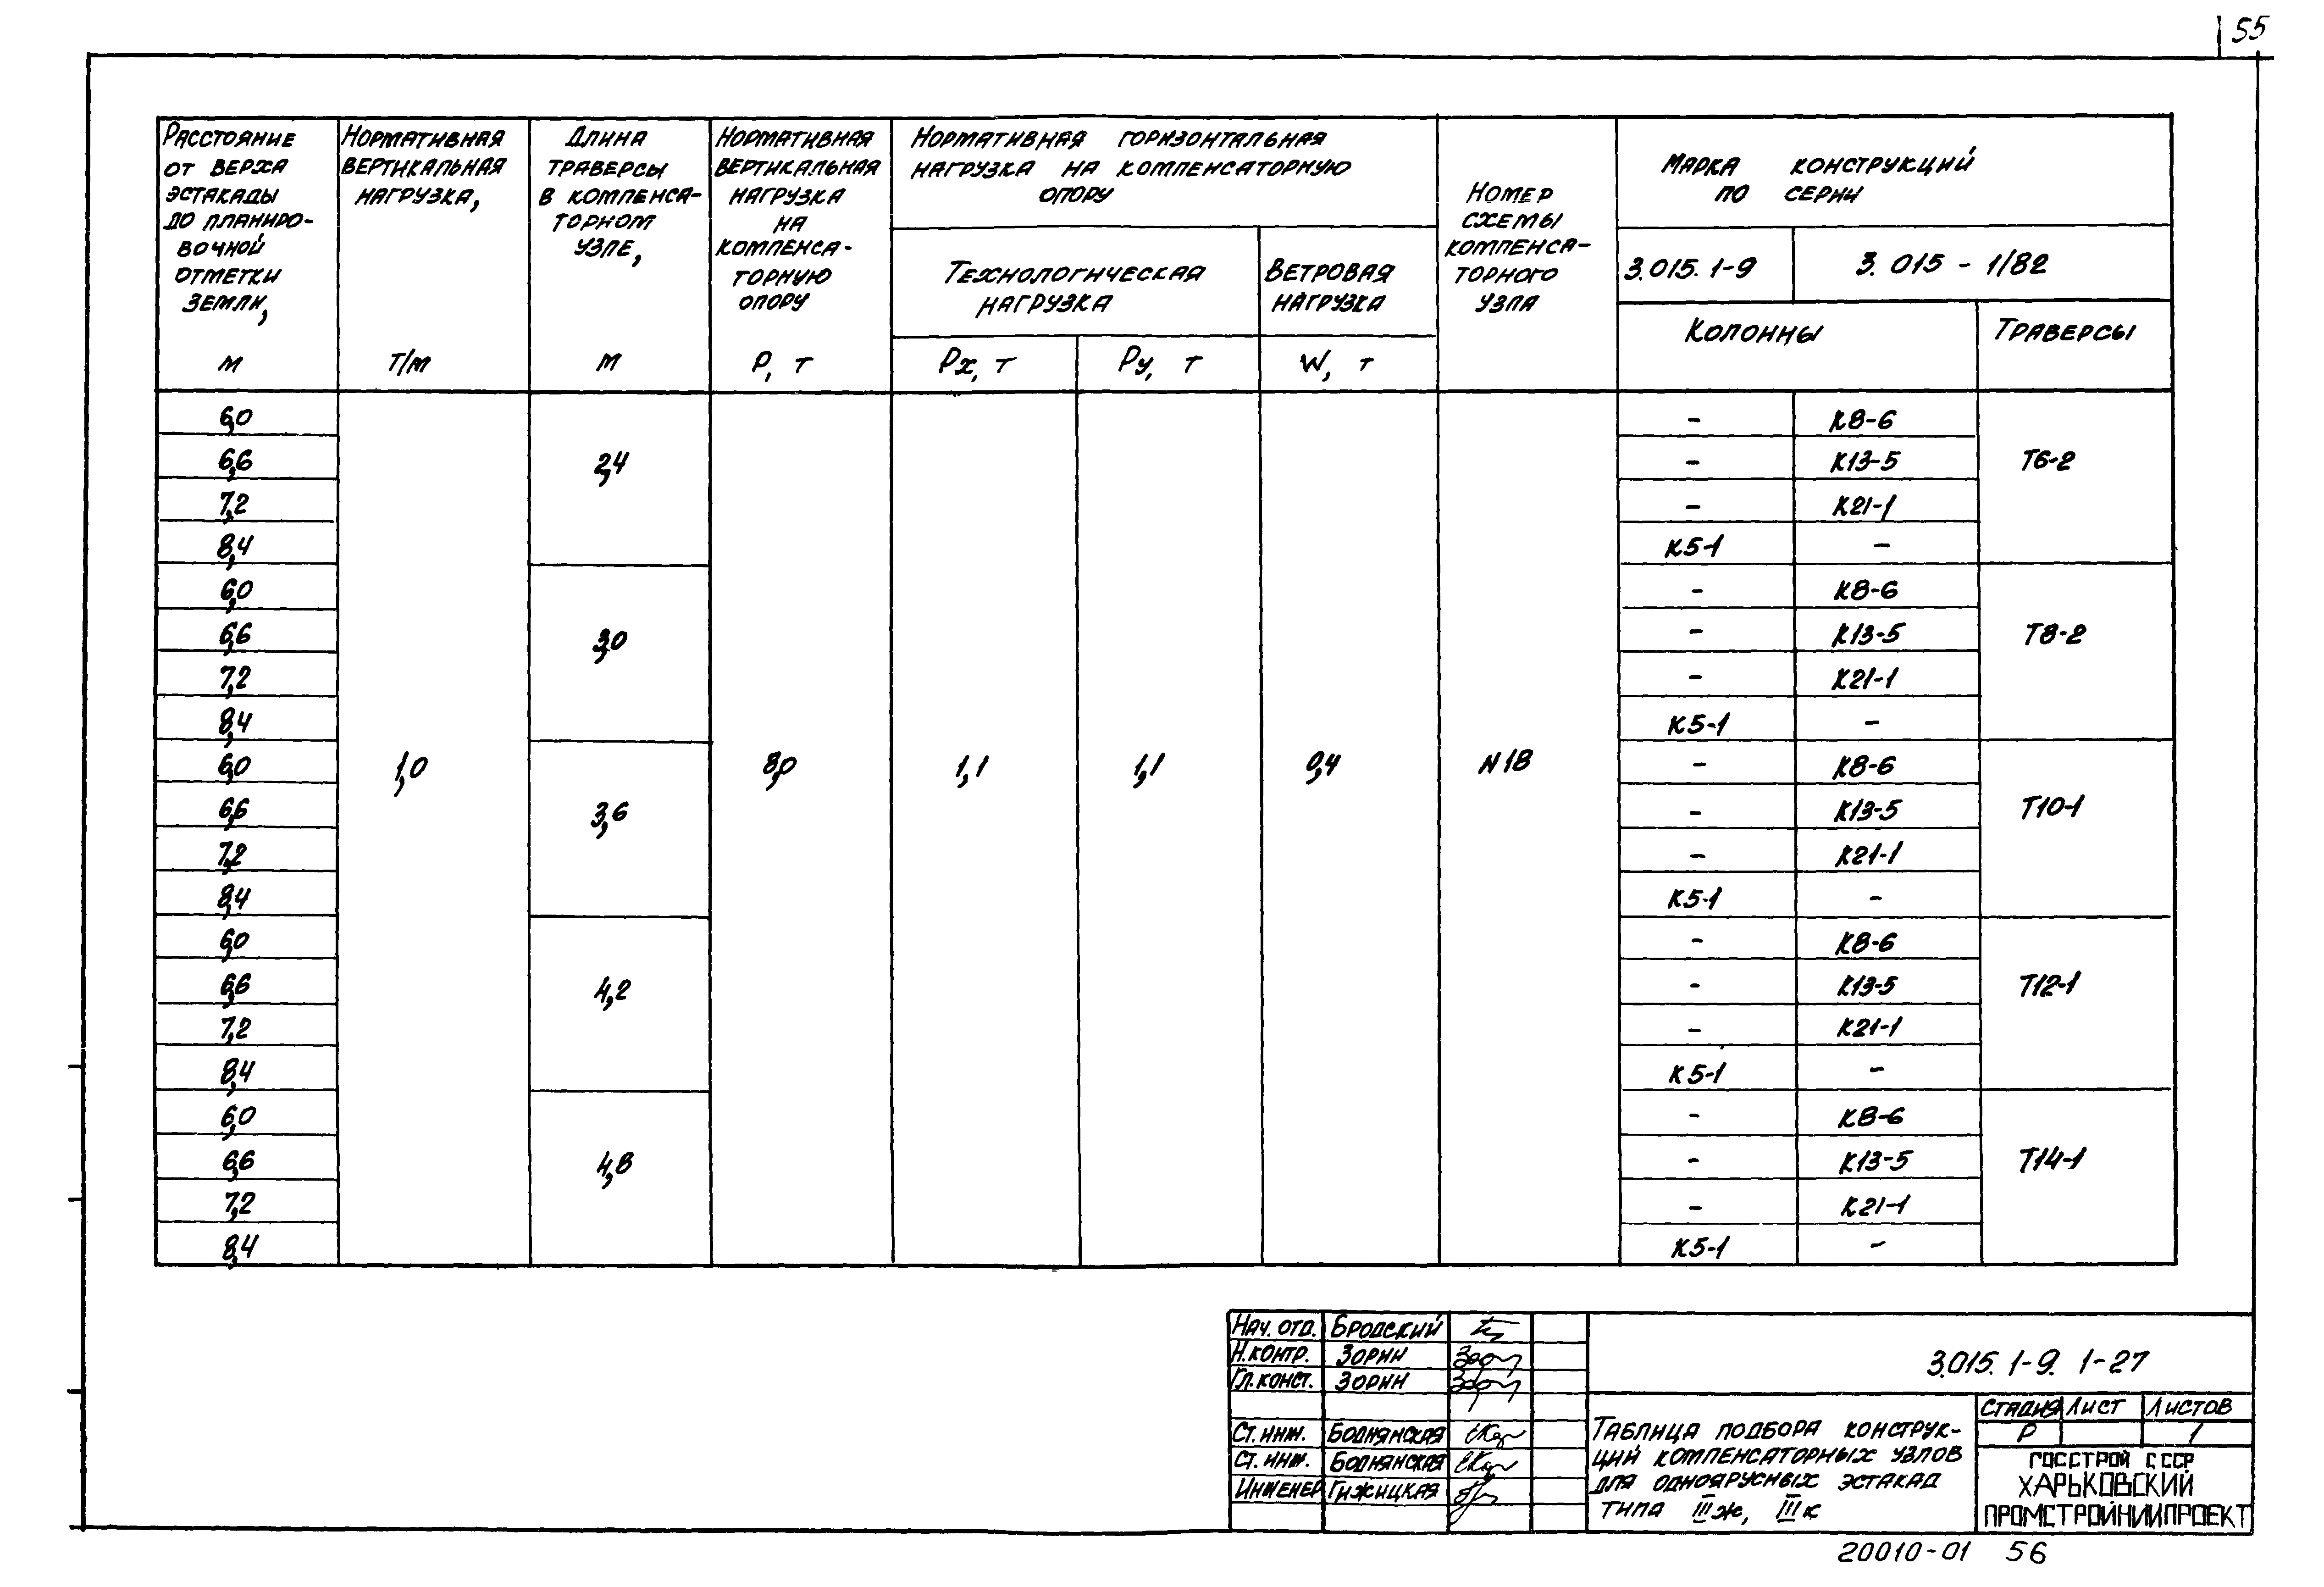 55
Расстояние от верха эстакады до планиро-вочной отметки земли, м
Нормативная вертикальная нагрузка, т/м
Длина траверсы в компенса-торном узле, м
Нормативная вертикальная нагрузка на компенса-торную опору Р, т
Нормативная горизонтальная нагрузка на компенсаторную опору
Технологическая нагрузка
Ветровая нагрузка
Рх, т
Ру, т
W, т
Номер схемы компенса-торного узла
Марка конструкций по серии
3.015.1-9
3.015-1/82
Колонны
Траверсы
6,0 - К8-6
6,6 2,4 - К13-5 Т6-2
7,2 - К21-1
8,4 К5-1 -
6,0 - К8-6
6,6 3,0 - К13-5 Т8-2
7,2 - К21-1
8,4 К5-1 -
6,0 1,0 8,0 1,1 1,1 0,4 N18 - К8-6
6,6 3,6 - К13-5 Т10-1
7,2 - К21-1
8,4 К5-1 -
6,0 - К8-6
6,6 4,2 - К13-5 Т12-1
7,2 - К21-1
8,4 К5-1 -
6,0 - К8-6
6,6 4,8 - К13-5 Т14-1
7,2 - К21-1
8,4 К5-1 -
Нач. отд. Бродский
Н.контр. Зорин
Гл.конст. Зорин
Ст. инж. Боднянская
Ст. инж. Боднянская
Инженер Гижицкая
3.015.1-9. 1-27
Таблица подбора конструк-
ций компенсаторных узлов
для одноярусных эстакад
типа IIIж, IIIк
Стадия Лист Листов
Р 1
ГОССТРОЙ СССР
ХАРЬКОВСКИЙ
ПРОМСТРОЙНИИПРОЕКТ
20010-01 56